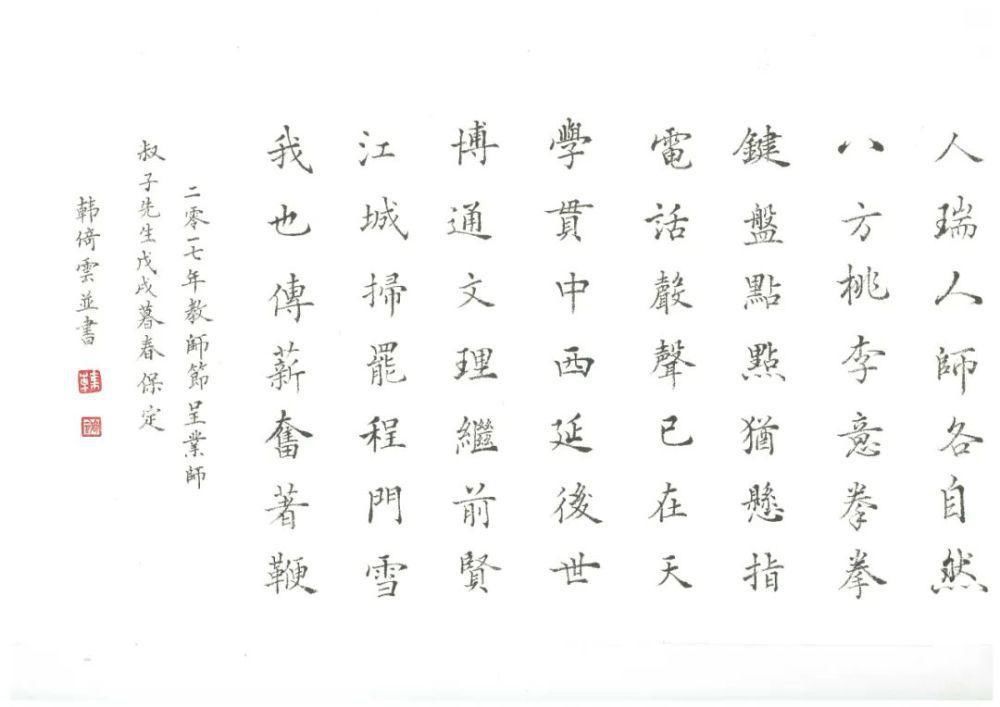 人瑞人師各自然
八方桃李意拳拳
鍵盤點點猶懸指
電話聲聲已在天
學貫中西延後世
博通文理繼前賢
江城掃罷程門雪
我也傳薪奮著鞭
二零一七年教師節呈業師
叔子先生戊戌暮春保定
韩倚雲並書